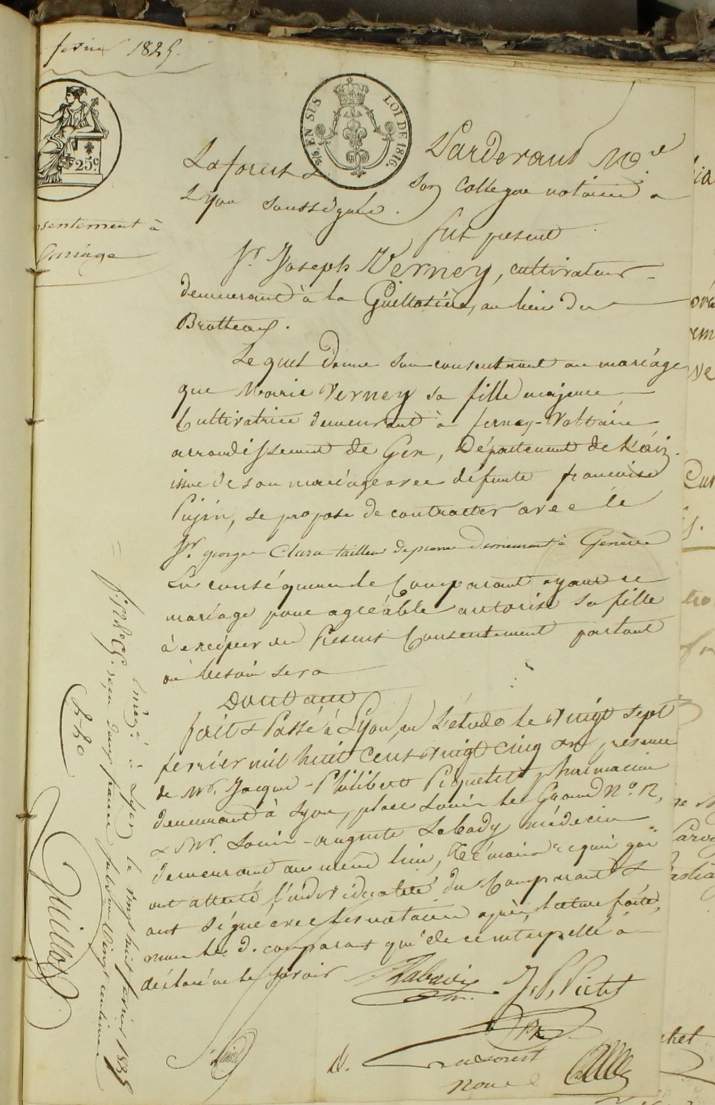 février 1825.
25c.
EN SUS
LOI DE 1816.
Pardevant Me.
Laforest &
son Collegue notaires a
Lyon soussignés.
sentement à
mariage
fut present
Sr. Joseph Verney, cultivateur
demeurant à la Guillotière, au lieu des
Brotteaux.
Lequel donne son consentement au mariage
que Marie Verney sa fille majeure
Cultivatrice demeurant à ferney-Voltaire
arrondissement de Gex, Département de l'ain,
issue de son mariage avec défunte françoise
Pujin, se propose de contracter avec le
Sr. georges Clara tailleur de pierre demeurant à Genève
En conséquence le Comparant ayant ce
mariage pour agréable autorise sa fille
à exciper du Présent Consentement partout
où besoin sera
Dont acte
fait & Passé à Lyon, en l'étude le vingt sept
fevrier mil huit cent vingt cinq en présence
de Mr. Jacques-Philibert pharmacien
demeurant à Lyon, place Louis le Grand No. 12,
& Mr. Louis-auguste Labady médecin
demeurant au même lieu, témoins requis qui
ont attesté l'individualité du Comparant &
ont signé avec les notaires après lecture faite,
non le d. comparant qui de ce interpellé à
déclaré ne le savoir
Labadi
J. P.
Laforest
nore
à Lyon le vingt huit février 1825
reçu deux francs vingt centimes
2-20
Guillot